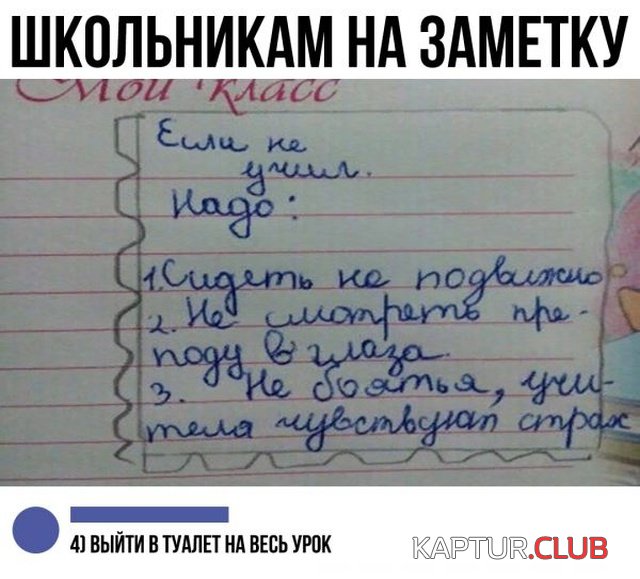 ШКОЛЬНИКАМ НА ЗАМЕТКУ
Мой Класс
Если не
учил.
Надо:
1.Сидеть не подвижно
2. Не смотреть пре-
поду в глаза.
3. Не боятья, учи-
теля чувствуют страх
4) ВЫЙТИ В ТУАЛЕТ НА ВЕСЬ УРОК
KAPTUR.CLUB